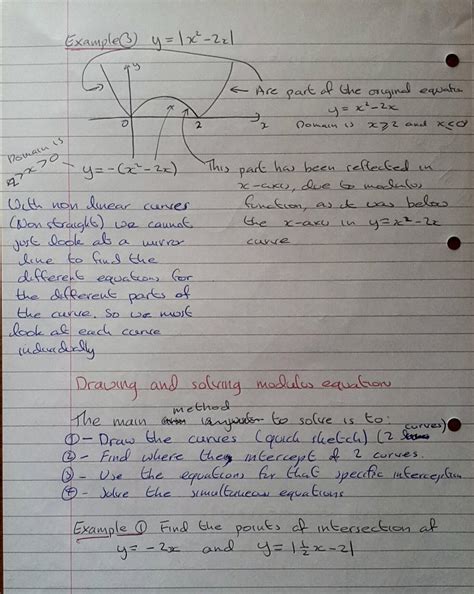 Example ③ y = |x²-2x|
y
Are part of the original equation
y = x²-2x
Domain is x≥2 and x≤0
0 2 x
Domain is
2>x>0
y = -(x²-2x)
This part has been reflected in
x-axis, due to modulus
function, as it was below
the x-axis in y=x²-2x
curve
With non linear curves
(Non straight) we cannot
just look at a mirror
line to find the
different equations for
the different parts of
the curve. So we must
look at each curve
individually
Drawing and solving modulus equation
The main method to solve is to:
① - Draw the curves (quick sketch) (2 curves)
② - Find where they intercept of 2 curves.
③ - Use the equations for that specific interception
④ - Solve the simultaneous equations
Example ① Find the points of intersection of
y = -2x and y = |½x-2|